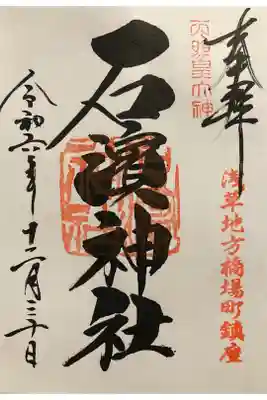 奉拝
天照皇大神
淺草地方橋場町鎮座
石濱神社
令和六年十二月三十日